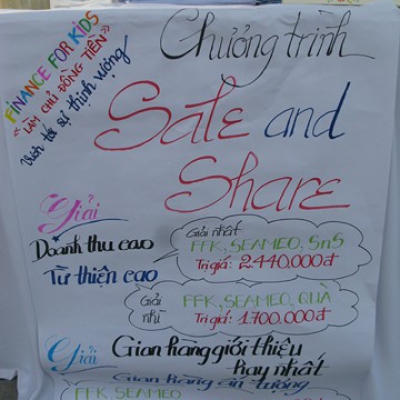 FINANCE FOR KIDS
« LÀM CHỦ ĐỒNG TIỀN »
Vươn tới sự thịnh vượng
Chương trình
Sale and
Share
Giải
Doanh thu cao
Từ thiện cao
Giải nhất
FFK, SEAMEO, SnS
Trị giá: 2.440.000đ
Giải nhì
FFK, SEAMEO, QUÀ
Trị giá: 1.700.000đ
Giải
Gian hàng giới thiệu
hay nhất
Gian hàng ấn tượng
FFK, SEAMEO